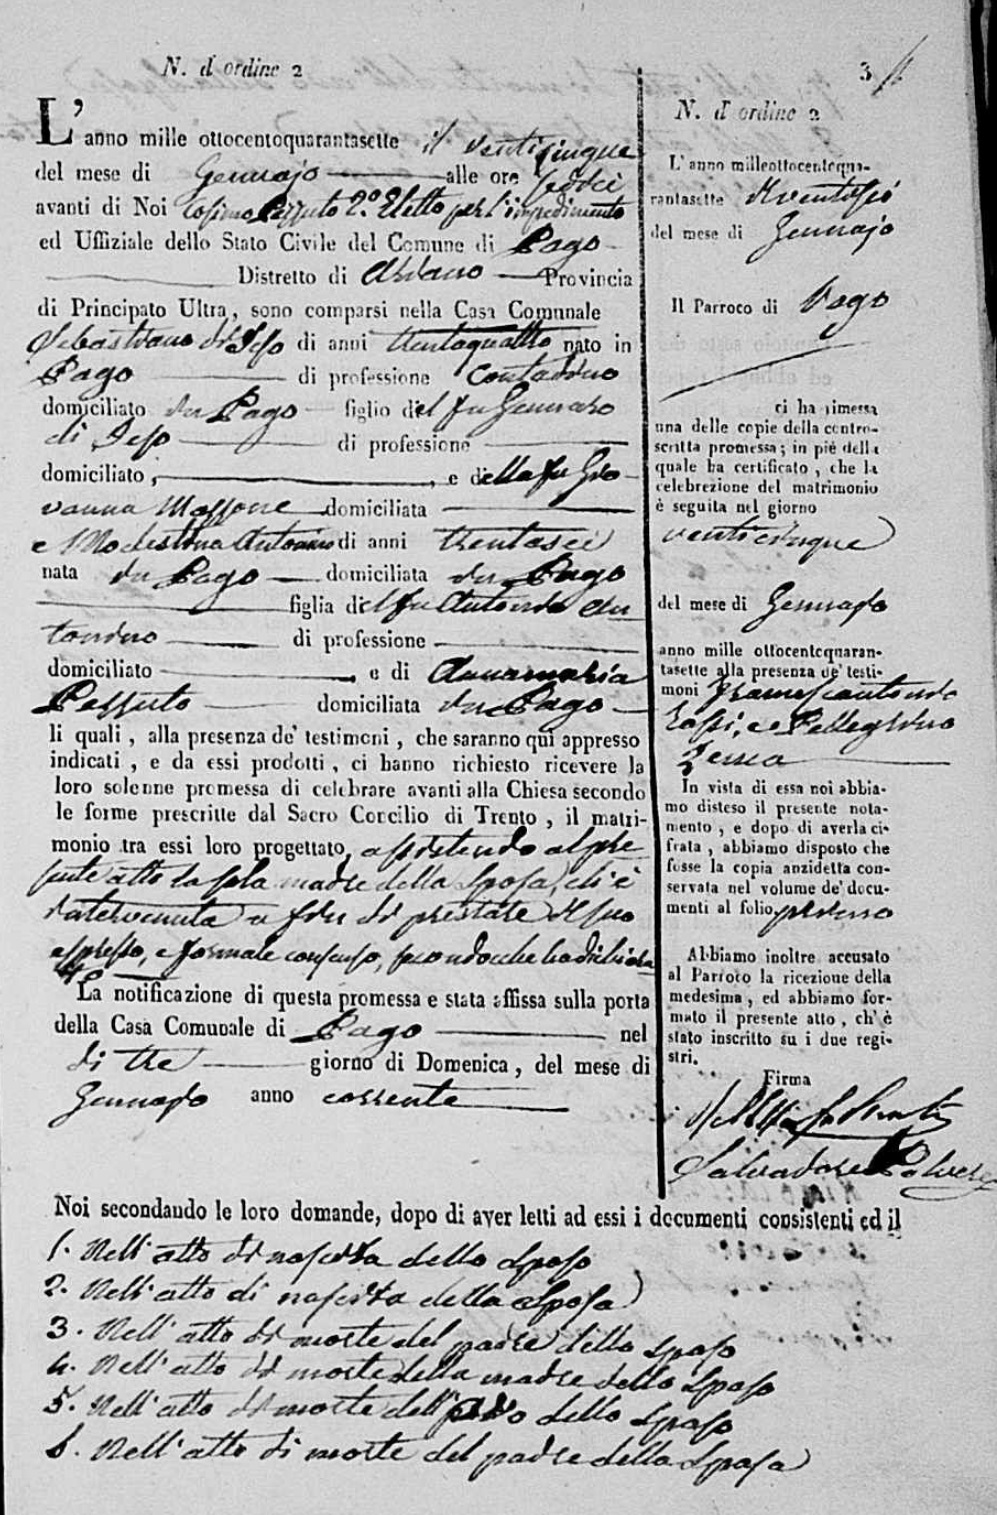 N. d'ordine 2
L'anno mille ottocentoquarantasette il venticinque
del mese di Gennajo alle ore sedeci
avanti di Noi Cosimo Pezzuto 2.° Eletto per l'impedimento
ed Uffiziale dello Stato Civile del Comune di Pago
Distretto di Ariano Provincia
di Principato Ultra, sono comparsi nella Casa Comunale
Sebastiano di Jeso di anni trentaquattro nato in
Pago di professione Contadino
domiciliato in Pago figlio del fu Gennaro
di Jeso di professione
domiciliato, , e della fu Gio
vanna domiciliata
e Modestina Antonino di anni trentasei
nata in Pago domiciliata in Pago
figlia del fu Antonio An
tonino di professione
domiciliato e di Annamaria
Pezzuto domiciliata in Pago
li quali, alla presenza de' testimoni, che saranno quì appresso
indicati, e da essi prodotti, ci hanno richiesto ricevere la
loro solenne promessa di celebrare avanti alla Chiesa secondo
le forme prescritte dal Sacro Concilio di Trento, il matri-
monio tra essi loro progettato, assistendo al pre
sente atto la sola madre della Sposa, ch'è
intervenuta a fin di prestare il suo
espresso, e formale consenso, secondocche ha dichiara
to
La notificazione di questa promessa e stata affissa sulla porta
della Casa Comunale di Pago nel
di tre giorno di Domenica, del mese di
Gennajo anno corrente
Noi secondando le loro domande, dopo di aver letti ad essi i documenti consistenti ed il
1. Nell'atto di nascita dello Sposo
2. Nell'atto di nascita della Sposa
3. Nell'atto di morte del padre dello Sposo
4. Nell'atto di morte della madre dello Sposo
5. Nell'atto di morte dell'avo dello Sposo
6. Nell'atto di morte del padre della Sposa
3
N. d'ordine 2
L'anno milleottocentoqua-
rantasette il ventisei
del mese di Gennajo
Il Parroco di Pago
ci ha rimessa
una delle copie della contro-
scritta promessa; in piè della
quale ha certificato, che la
celebrezione del matrimonio
è seguita nel giorno
venticinque
del mese di Gennajo
anno mille ottocentoquaran-
tasette alla presenza de' testi-
moni Francescantonio
Rossi, e Pellegrino
Zerrea
In vista di essa noi abbia-
mo disteso il presente nota-
mento, e dopo di averla ci-
frata, abbiamo disposto che
fosse la copia anzidetta con-
servata nel volume de' docu-
menti al folio primo
Abbiamo inoltre accusato
al Parroco la ricezione della
medesima, ed abbiamo for-
mato il presente atto, ch'è
stato inscritto su i due regi-
stri.
Firma
Salvadore Polvere